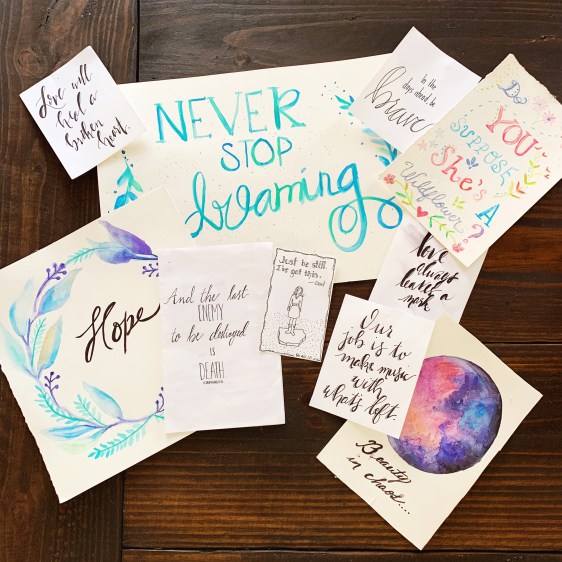 Love will
heal a
broken
heart.
NEVER
STOP
Roaming
in the
days ahead be
brave
Do
YOU
SUPPOSE,
She's
A
Wildflower?
Hope
And the last
ENEMY
to be destroyed
is
DEATH.
Just be still.
I've got this.
—God
Love
always
leaves a
mark
Our
job is to
make music
with
what's left.
Beauty
in chaos...